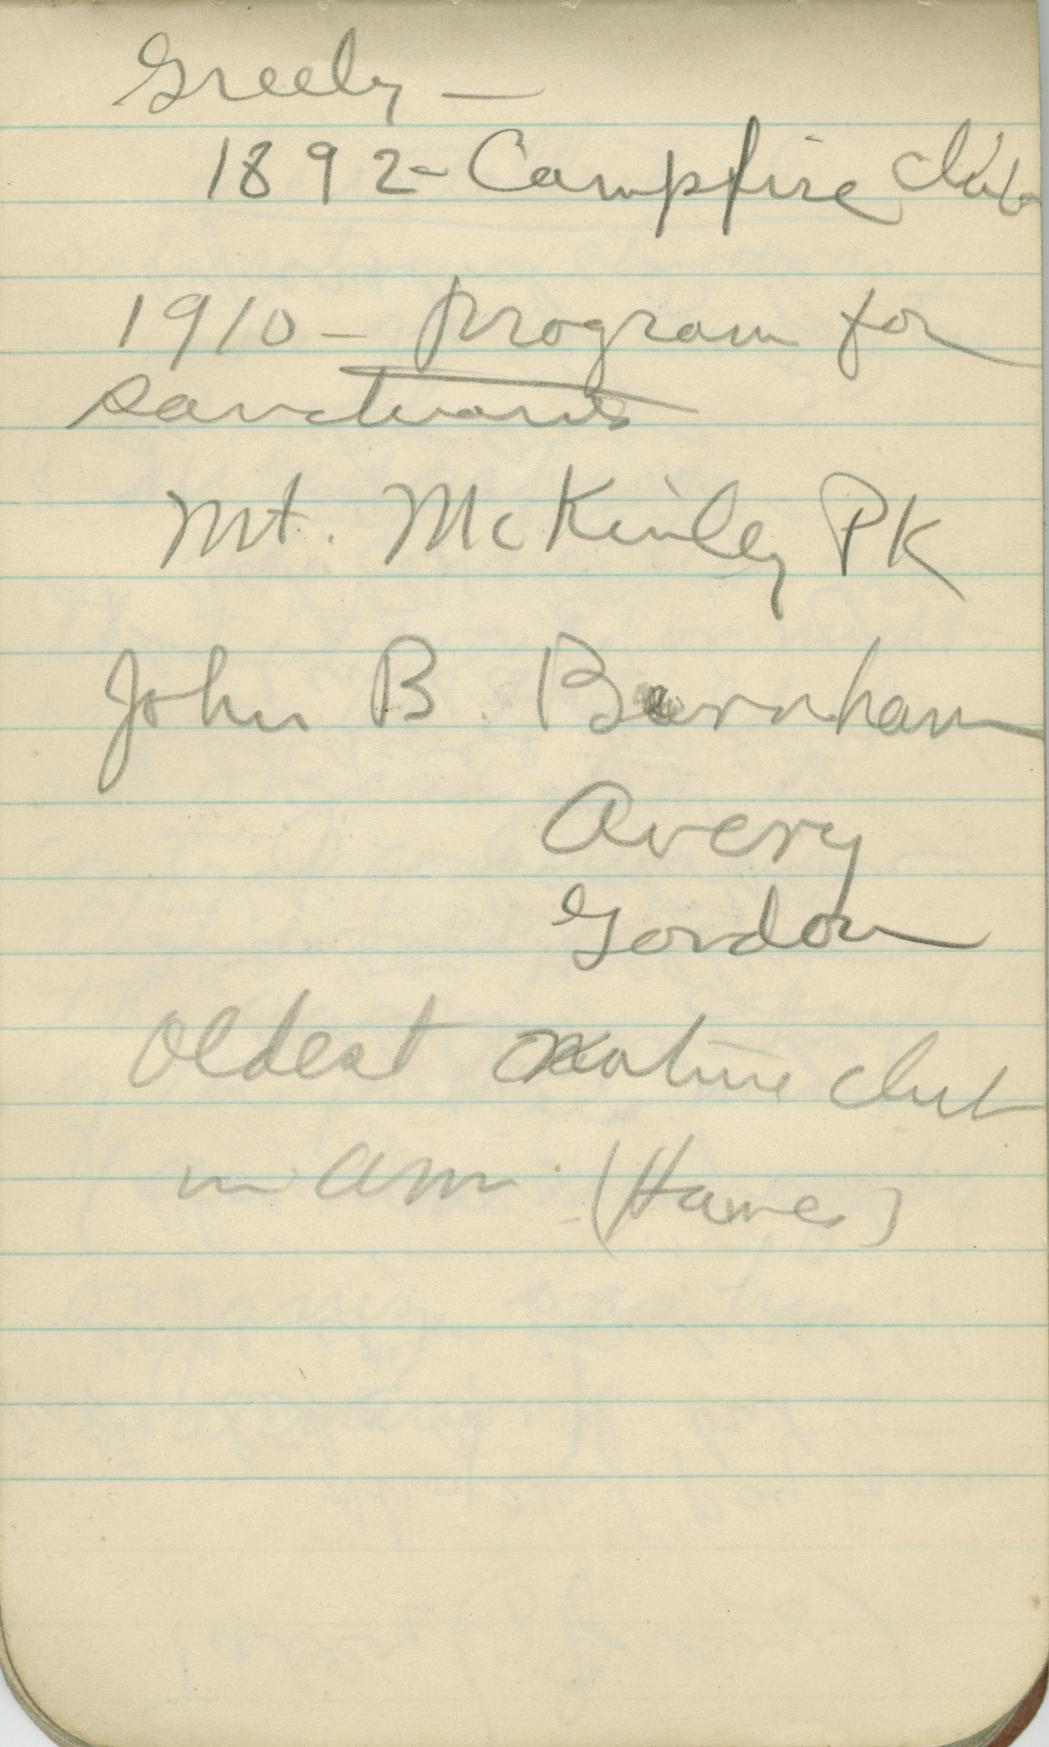 Greely —
1892 - Campfire Club
1910 - program for
sanctuaries
Mt. McKinley PK
John B. Burnham
Avery
Gordon
Oldest nature club
in Am. (Hawes)